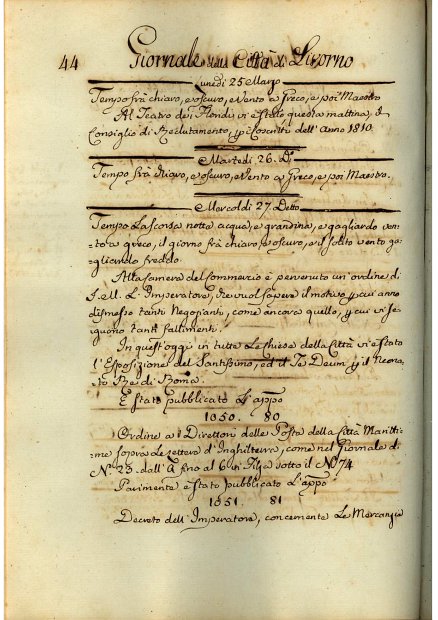 44 Giornale della Città di Livorno
Lunedi 25 Marzo
Tempo frà chiaro, e oscuro, e Vento a Greco, e poi Maestro
Al Teatro dei Floridi vi è stato questa mattina il
Consiglio di Reclutamento, p i Coscritti dell'Anno 1810.
Martedi 26. Do
Tempo frà chiaro, e oscuro, e Vento a Greco, e poi Maestro.
Mercoldi 27. Detto
Tempo La scorsa notte acqua, e grandina, e gagliardo ven-
to a greco, il giorno frà chiaro, e oscuro, e il solito vento ga-
gliardo freddo.
Alla Camera del Commercio è pervenuto un ordine di
S. M. L'Imperatore, che vuol sapere il motivo p cui anno
dismesso tanti Negozianti, come ancora quello, p cui vi se-
guono tanti fallimenti.
In quest'oggi in tutte Le Chiese della Città vi è stato
l'Esposizione del Santissimo, ed il Te Deum p il Neona-
to Re di Roma.
È stato pubblicato L'appo
1050. 80
Ordine ai Direttori delle Poste della Città Maritti-
me sopra Le lettere d'Inghilterra, come nel Giornale di
No 23. dall' A fino al 6 in Filza sotto il No 74
Parimente è stato pubblicato L'appo
1051. 81
Decreto dell'Imperatore, concernente Le Mercanzie